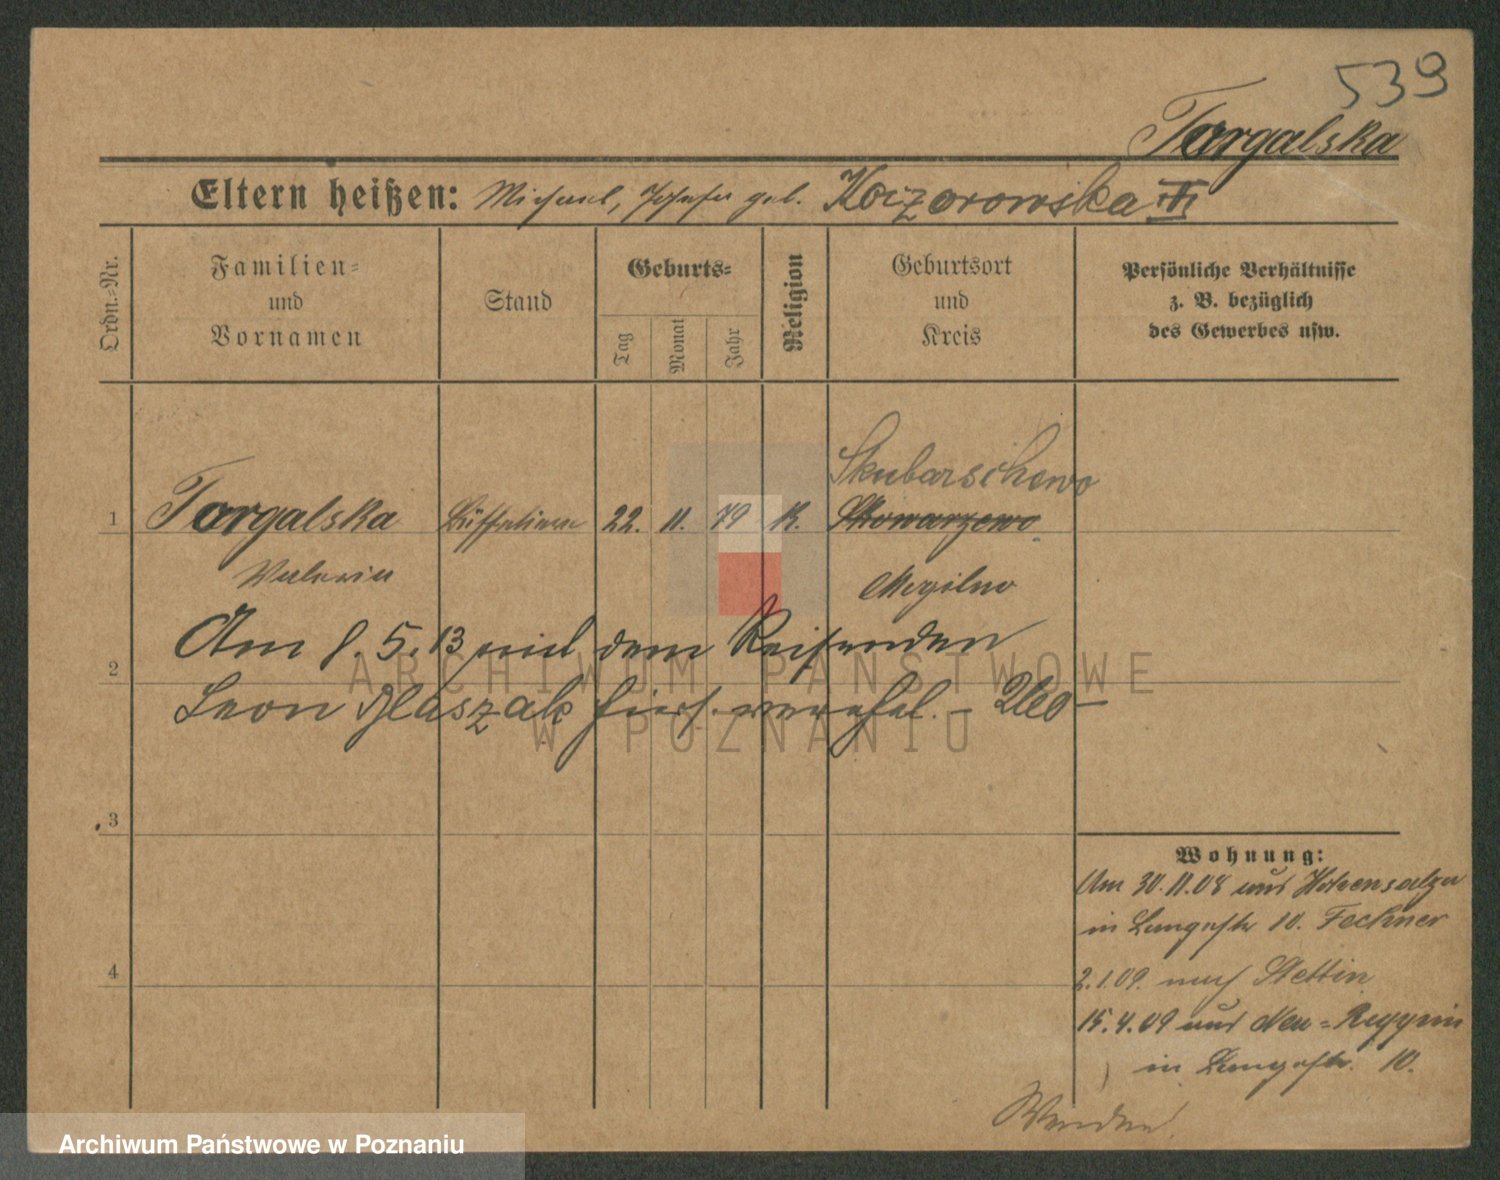 539
Targalska
Eltern heißen: Michael, Josefa geb. Koczorowska III
Ordn.-Nr.
Familien-
und
Vornamen
Stand
Geburts-
Tag
Monat
Jahr
Religion
Geburtsort
und
Kreis
Persönliche Verhältnisse
z. B. bezüglich
des Gewerbes usw.
Skubarschewo
1 Targalska Büffetiere 22. 11. 79 K. Skowarzewo
Valeria Mogilno
Am 8.5.13 mit dem Reisenden
2
Leon Blaszak hier verehel. -
3
Wohnung:
Am 30.11.08 aus Hohensalza
in Langestr 10. Fechner
4
2.1.09. nach Stettin
15.4.09 aus Neu-Ruppin
in Langestr. 10.
Wenden!
ARCHIWUM PAŃSTWOWE
W POZNANIU
Archiwum Państwowe w Poznaniu